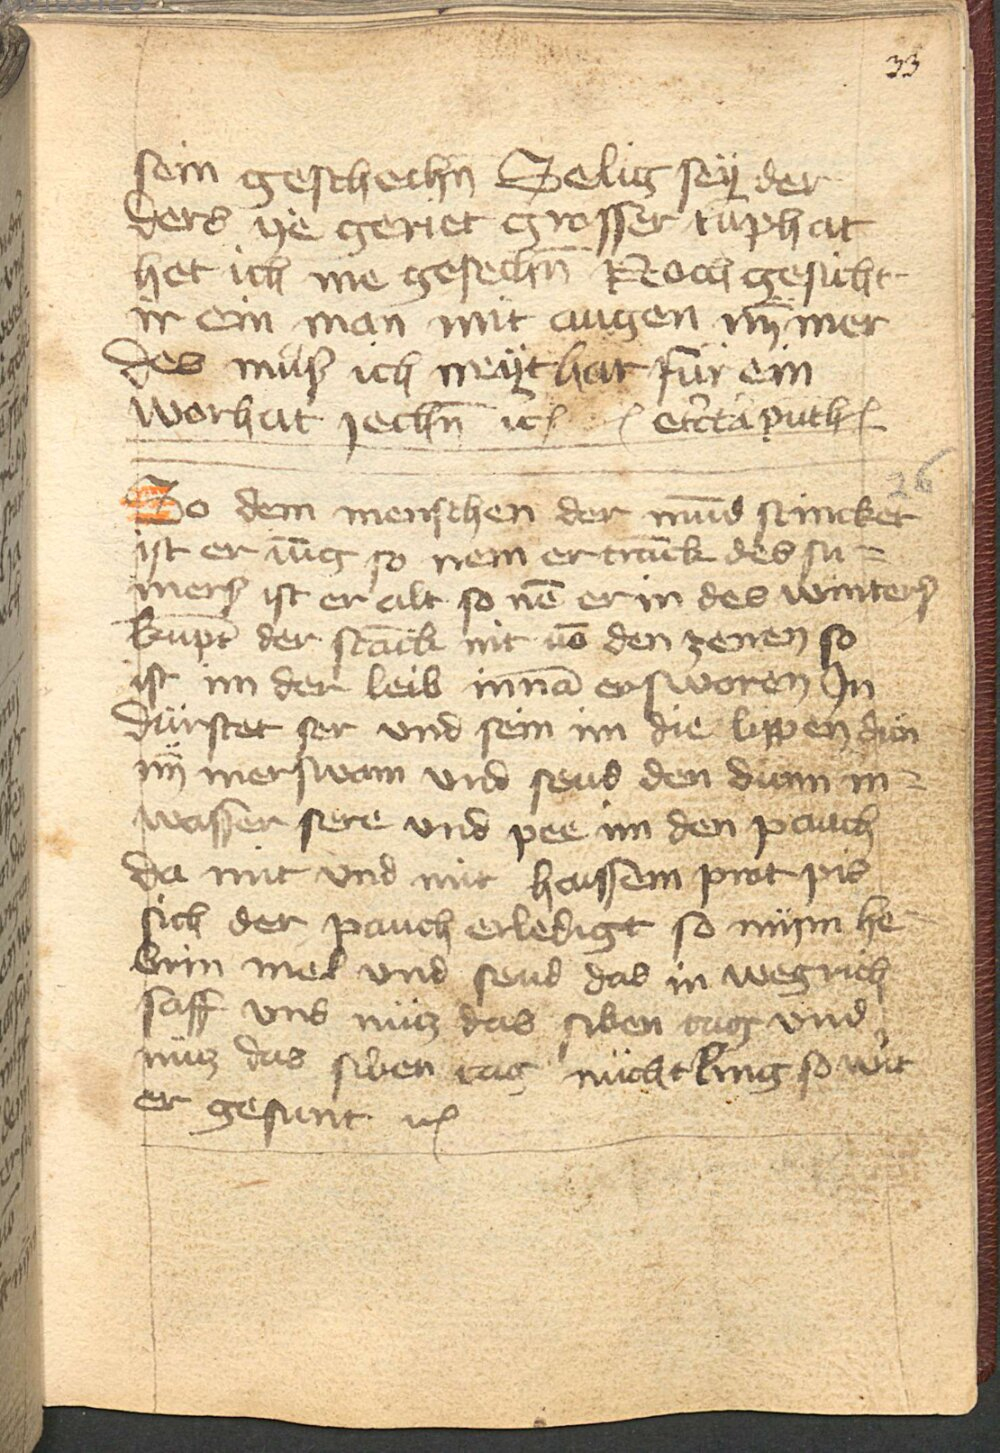 33
sein geschechn̄ Selig seÿ der
ders ye geriet grosser tuphat
het ich nie gesechn̄ Noch gesicht
ir ein man mit augen nÿ̄mer
des muͦß ich neÿthart für ein
worhat jechn̄ ic
26
So dem menschen der mūd stincket
ist er iūg so nem er tranck des su-
mers ist er alt so nē er in des winters
kūpt der stāck nit vō den zenen so
ist im der leib innā ersworen In
dürstet ser vnd sein im die lippen dün
nÿm merswam vnd seud den dinn in
wasser sere vnd pee im den pauch
da mit vnd mit haissem prot pis
sich der pauch erledigt so nym he
brin mel vnd seud das in wegrich
saff vns nücz das siben tag vnd
nücz das siben tag nüchtling so wirt
er gesunt ic